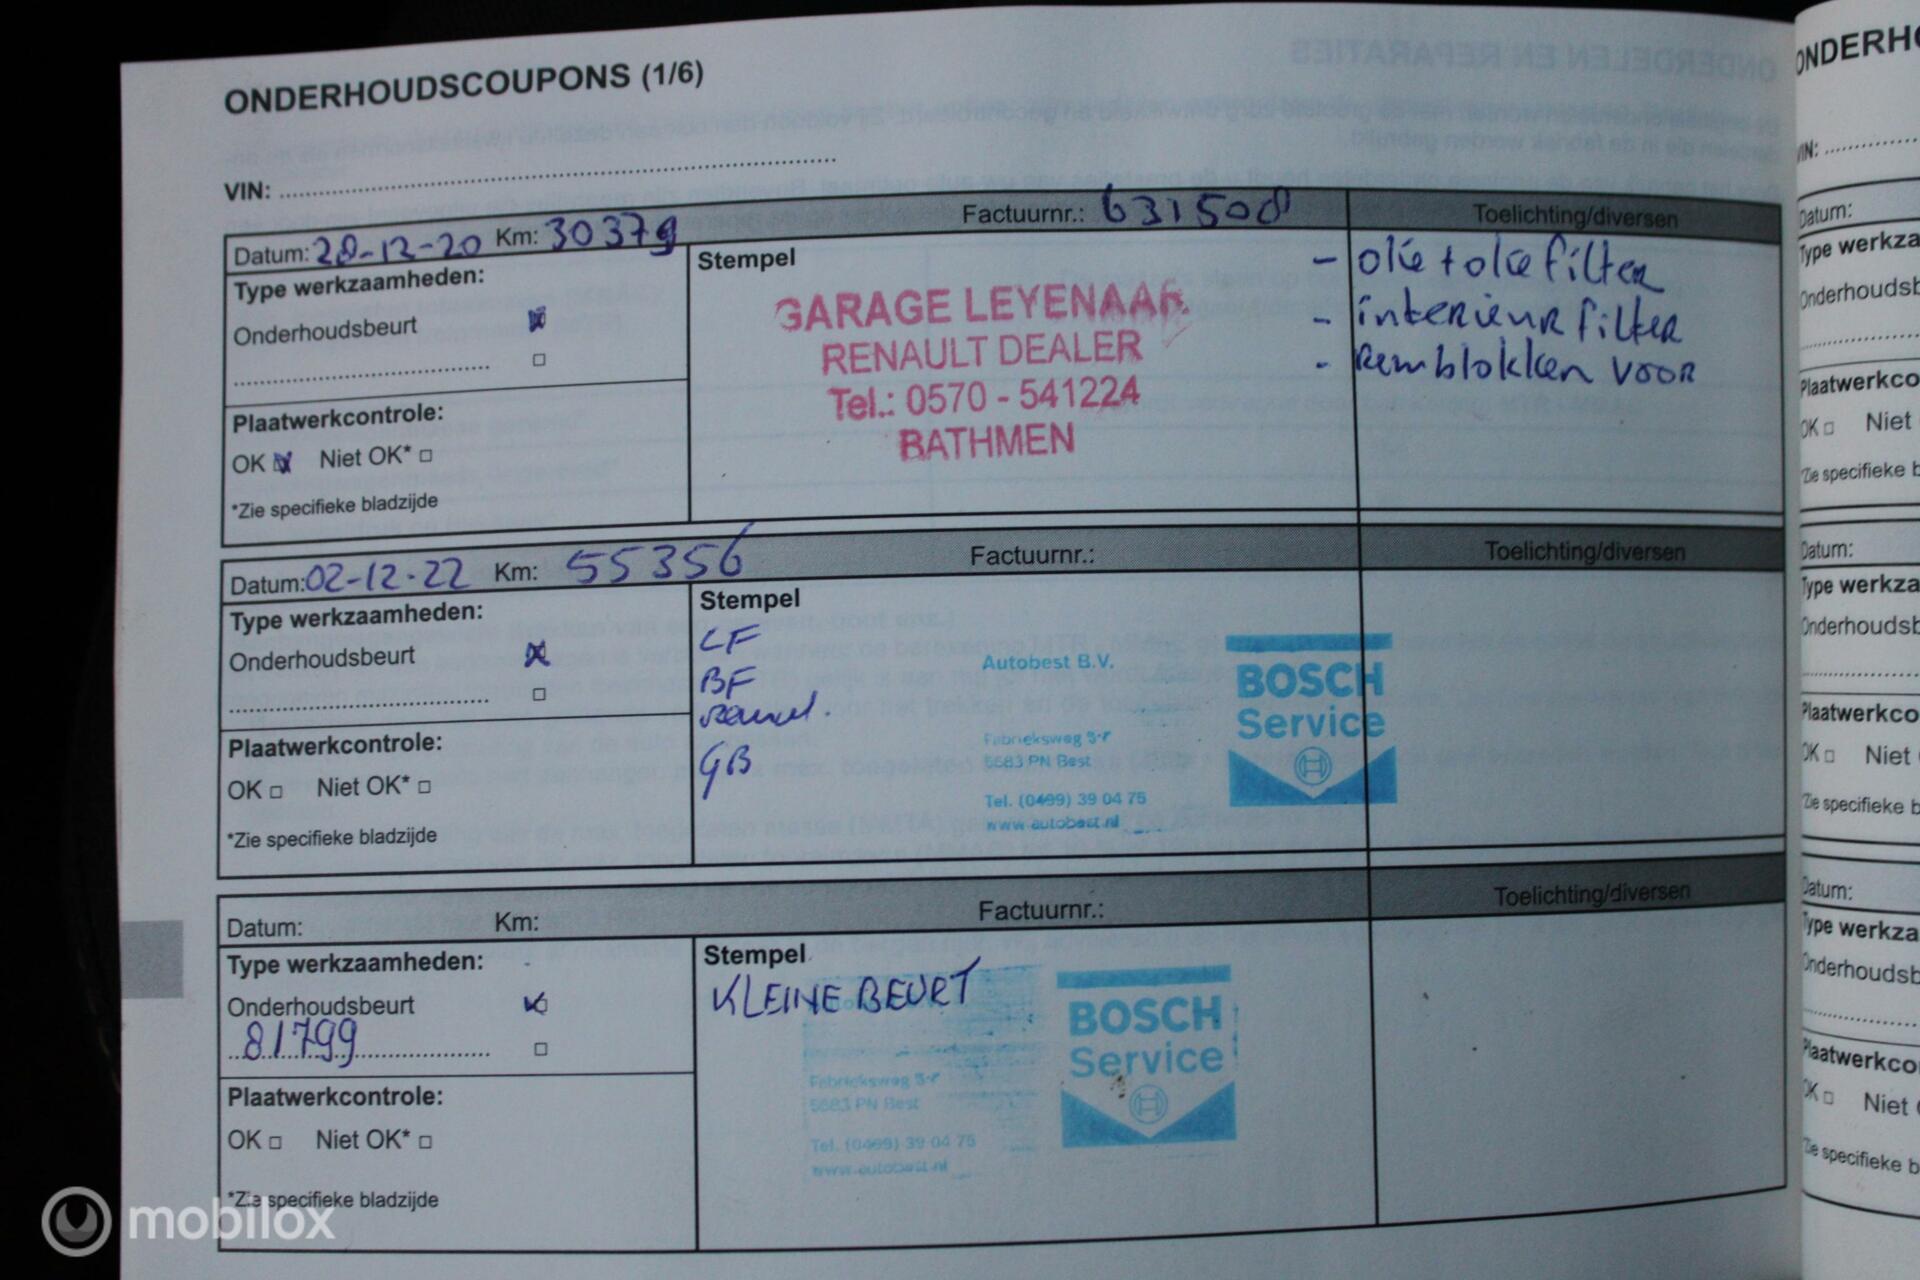 ONDERHOUDSCOUPONS (1/6)
VIN:
Datum: 28-12-20 Km: 30379 Factuurnr.: 631508 Toelichting/diversen
Type werkzaamheden:
Onderhoudsbeurt
Plaatwerkcontrole:
OK Niet OK*
*Zie specifieke bladzijde
Stempel
GARAGE LEYENAAR
RENAULT DEALER
Tel.: 0570 - 541224
BATHMEN
- olie + oliefilter
- interieurfilter
- Remblokken voor
Datum: 02-12-22 Km: 55356 Factuurnr.: Toelichting/diversen
Type werkzaamheden:
Onderhoudsbeurt
Plaatwerkcontrole:
OK Niet OK*
*Zie specifieke bladzijde
Stempel
LF
BF
GB
Autobest B.V.
Fabrieksweg 5-7
5683 PN Best
Tel. (0499) 39 04 75
www.autobest.nl
BOSCH
Service
Datum: Km: Factuurnr.: Toelichting/diversen
Type werkzaamheden:
Onderhoudsbeurt
81799
Plaatwerkcontrole:
OK Niet OK*
*Zie specifieke bladzijde
Stempel
KLEINE BEURT
Autobest B.V.
Fabrieksweg 5-7
5683 PN Best
Tel. (0499) 39 04 75
www.autobest.nl
BOSCH
Service
ONDERHO
VIN:
Datum:
Type werkza
Onderhoudsb
Plaatwerkco
OK Niet
*Zie specifieke b
Datum:
Type werkza
Onderhoudsb
Plaatwerkco
OK Niet
*Zie specifieke b
Datum:
Type werkza
Onderhoudsb
Plaatwerkco
OK Niet
*Zie specifieke b
mobilox